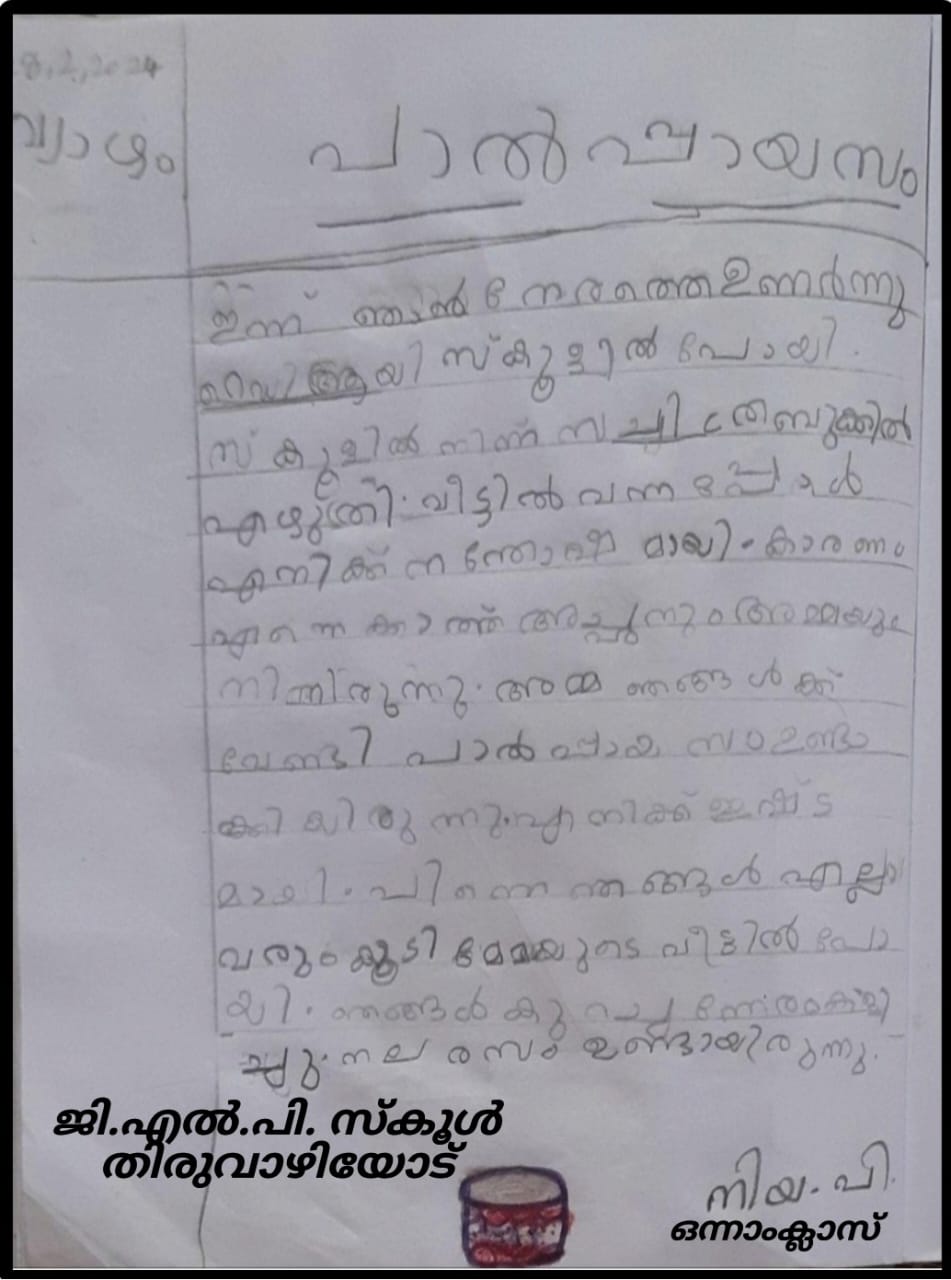 8,2,2024
വ്യാഴം
പാൽപ്പായസം
ഇന്ന് ഞാൻ നേരത്തെ ഉണർന്നു
റെഡിആയി സ്കൂളിൽ പോയി.
സ്കൂളിൽ നിന്ന് സചിത്രബുക്കിൽ
എഴുതി. വീട്ടിൽ വന്നപ്പോൾ
എനിക്ക് സന്തോഷമായി. കാരണം
എന്നെ കാത്ത് അച്ഛനും അമ്മയും
നിന്നിരുന്നു. അമ്മ ഞങ്ങൾക്ക്
വേണ്ടി പാൽപ്പായസം ഉണ്ടാ
ക്കിയിരുന്നു. എനിക്ക് ഇഷ്ട
മായി. പിന്നെ ഞങ്ങൾ എല്ലാ
വരും കൂടി മേമയുടെ വീട്ടിൽ പോ
യി. ഞങ്ങൾ കുറച്ച് നേരം കളി
ച്ചു. നല്ല രസം ഉണ്ടായിരുന്നു.
ജി.എൽ.പി. സ്കൂൾ
തിരുവാഴിയോട്
നിയ. പി.
ഒന്നാംക്ലാസ്